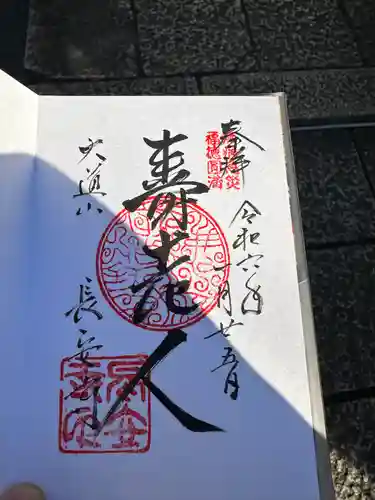 奉拝
令和六年一月廿五日
寿老人
大道山
長安寺